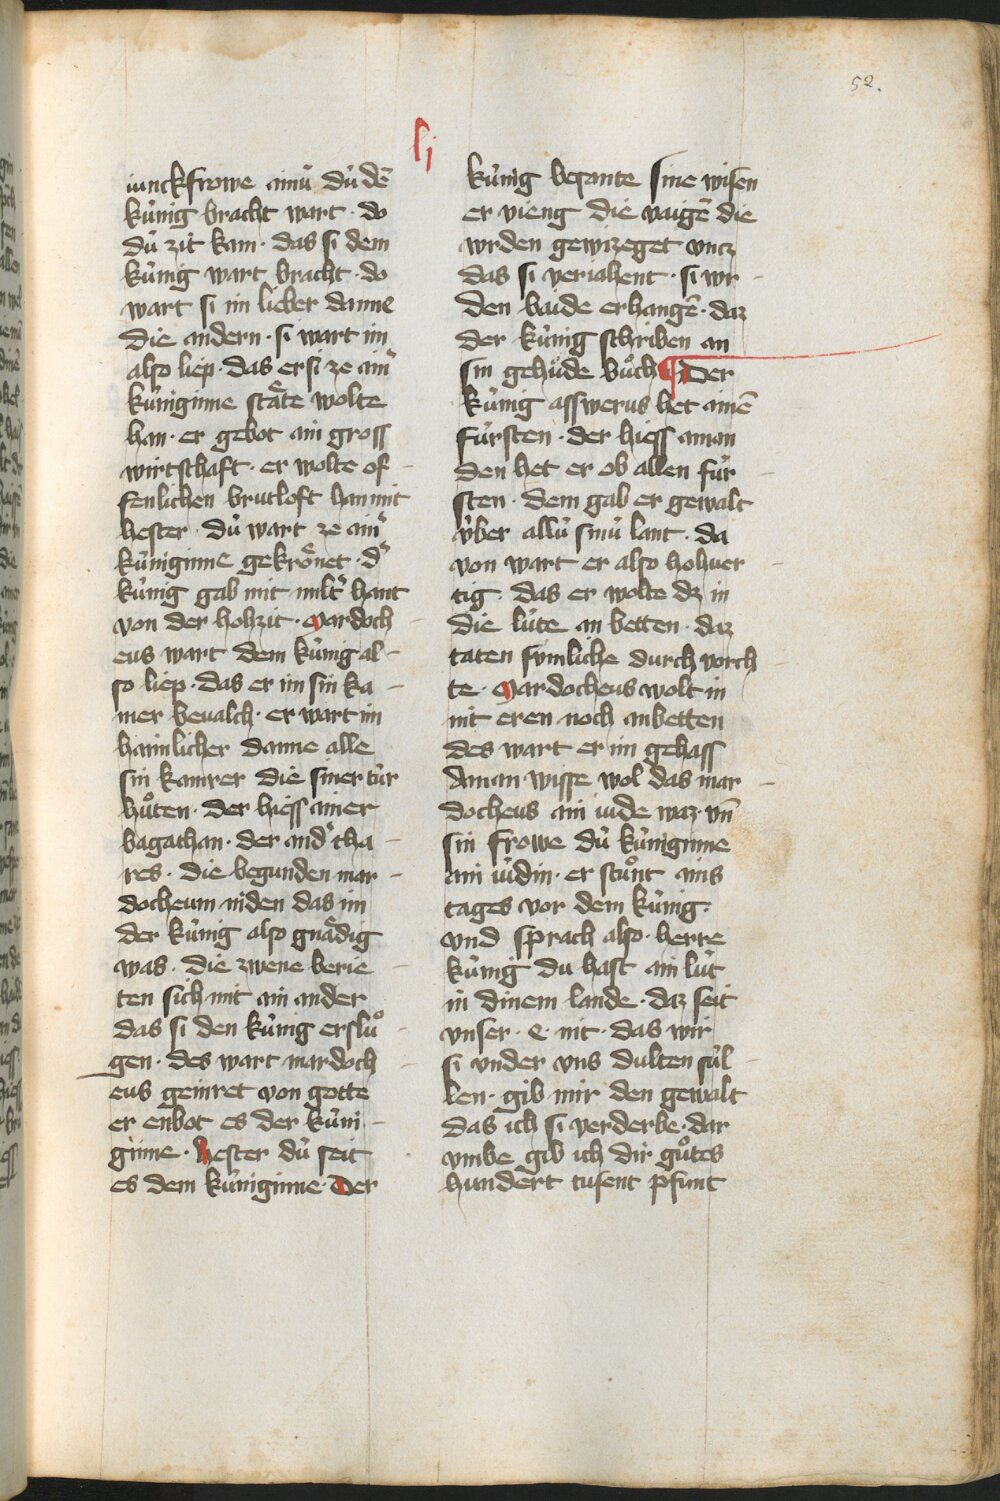 52.
lj
iunckfrowe ainú dú dē
kúnig bracht wart · do
dú zit kam · das si dem
kúnig wart bracht · do
wart si im lieber danne
die andern · si wart im
also liep · das er si ze ain᷑
kúniginne stäte wolte
han · er gebot ain gross
wirtschaft · er wolte of
fenlichen brutloft han mit
hester · dú wart ze ain᷑
kúniginne gekrönet · d᷑
kúnig gab mit milt᷑ hant
von der hohzit · Mardoch
eus wart dem kúnig al
so liep · das er im sin ka
mer beualch · er wart im
haimlicher danne alle
sin kamrer die siner túr
hůten · der hiess ainer
bagathan · der and᷑ tha
res · die begunden mar
docheum niden das im
der kúnig also gnädig
was · die zwene berie
ten sich mit ain ander
das si den kúnig erslů
gen · des wart mardoch
eus geinret von gotte
er enbot es der kúni
ginne · hester dú seit
es dem kúniginne · Der
kúnig besante sine wisen
er vieng die vaigē die
wrden gewizeget vncz
das si veriahent · si wr
den baide erhangē · daz
der kúnig schriben an
sin gehúde bůch ¶ Der
kúnig asswerus het ainē
fúrsten · der hiess aman
den het er ob allen fúr
sten · dem gab er gewalt
v́ber allú sinú lant · da
von wart er also hohuer
tig das er wolte dz in
die lúte an betten · daz
taten sṽmliche durch vorch
te · Mardocheus wolt in
nit eren noch anbetten
des wart er im gehass
Aman wisse wol das mar
docheus ain iude waz · vn̄
sin frowe dú kúniginne
ain iúdin · er stůnt ains
tages vor dem kúnig ·
vnd sprach also · herre
kúnig du hast ain lút
in dinem lande · daz seit
vnser · e · nit · das wir
si vnder vns dulten súl
len · gib mir den gewalt
das ich si verderbe · dar
vmbe gib ich dir gůtes
hundert tusent pfunt